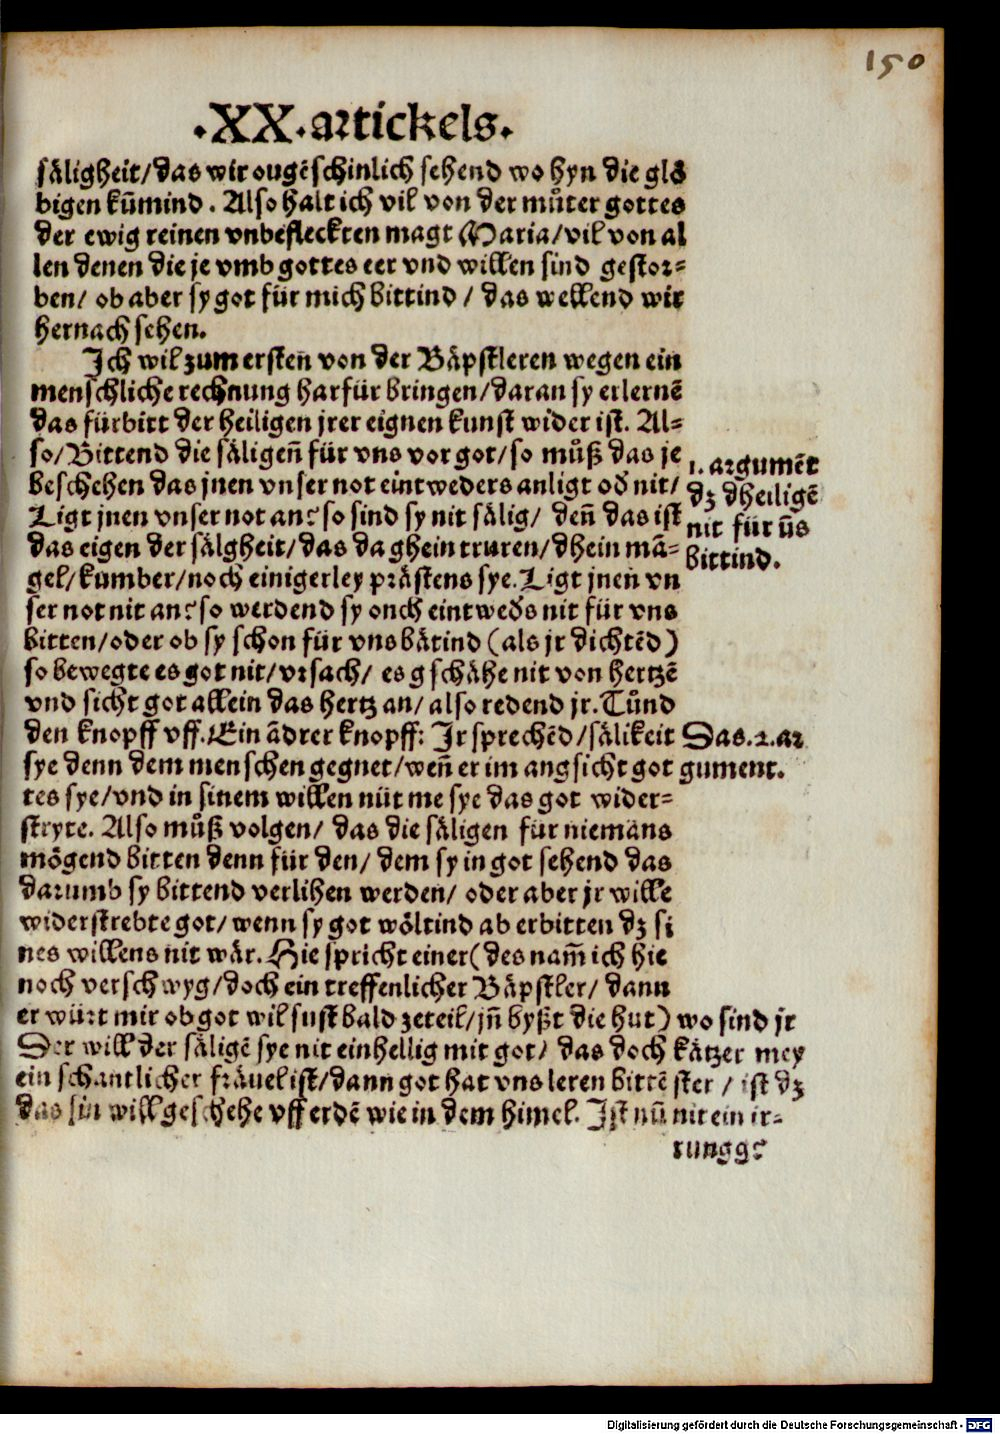 150
.XX.artickels.
säligheit/das wir ougēschinlich sehend wo hyn die glö
bigen kūmind. Also halt ich vil von der můter gottes
der ewig reinen vnbefleckten magt Maria/vil von al
len denen die je vmb gottes eer vnd willen sind gestor⸗
ben/ ob aber sy got für mich bittind/ das wellend wir
hernach sehen.
Ich wil zum ersten̄ von der Bäpstleren wegen ein
menschliche rechnung harfür bringen/daran sy erlernē
das fürbitt der heiligen jrer eignen kunst wider ist. Al⸗
so/Bittend die säligen̄ für vns vor got/so můß das je
beschehen das jnen vnser not eintweders anligt od̕ nit/
Ligt jnen vnser not an? so sind sy nit sälig/ den̄ das ist
das eigen der sälgheit/das da ghein truren/dhein mā⸗
gel/kumber/noch einigerley prästens sye. Ligt jnen vn
ser not nit an? so werdend sy onch eintwed̕s nit für vns
bitten/oder ob sy schon für vns bätind (als jr dichtēd)
so bewegte es got nit/vrsach/ es gschähe nit von hertzē
vnd sicht got allein das hertz an/also redend jr. Tůnd
den knopff vff. Ein ādrer knopff: Ir sprechēd/sälikeit
sye denn dem menschen gegnet/wen̄ er im angsicht got
tes sye/vnd in sinem willen nüt me sye das got wider⸗
stryte. Also můß volgen/ das die säligen für niemāns
mögend bitten denn für den/ dem sy in got sehend das
darumb sy bittend verlihen werden/ oder aber jr wille
widerstrebte got/ wenn sy got wöltind ab erbitten dz si
nes willens nit wär. Hie spricht einer(des nam̄ ich hie
noch verschwyg/doch ein treffenlicher Bäpstler/ dann
er würt mir ob got wil sust bald zeteil/jn̄ byßt die hut)
Der will der säligē sye nit einhellig mit got/ das doch
ein schantlicher fräuel ist/dann got hat vns leren bittē
das sin will geschehe vff erdē wie in dem himel. Ist nū
1. argumēt
dz dheiligē
nit für ūs
bittind.
Das.2.ar
gument.
wo sind jr
kätzer mey
ster/ ist dz
nit ein ir⸗
rungg?
Digitalisierung gefördert durch die Deutsche Forschungsgemeinschaft - DFG